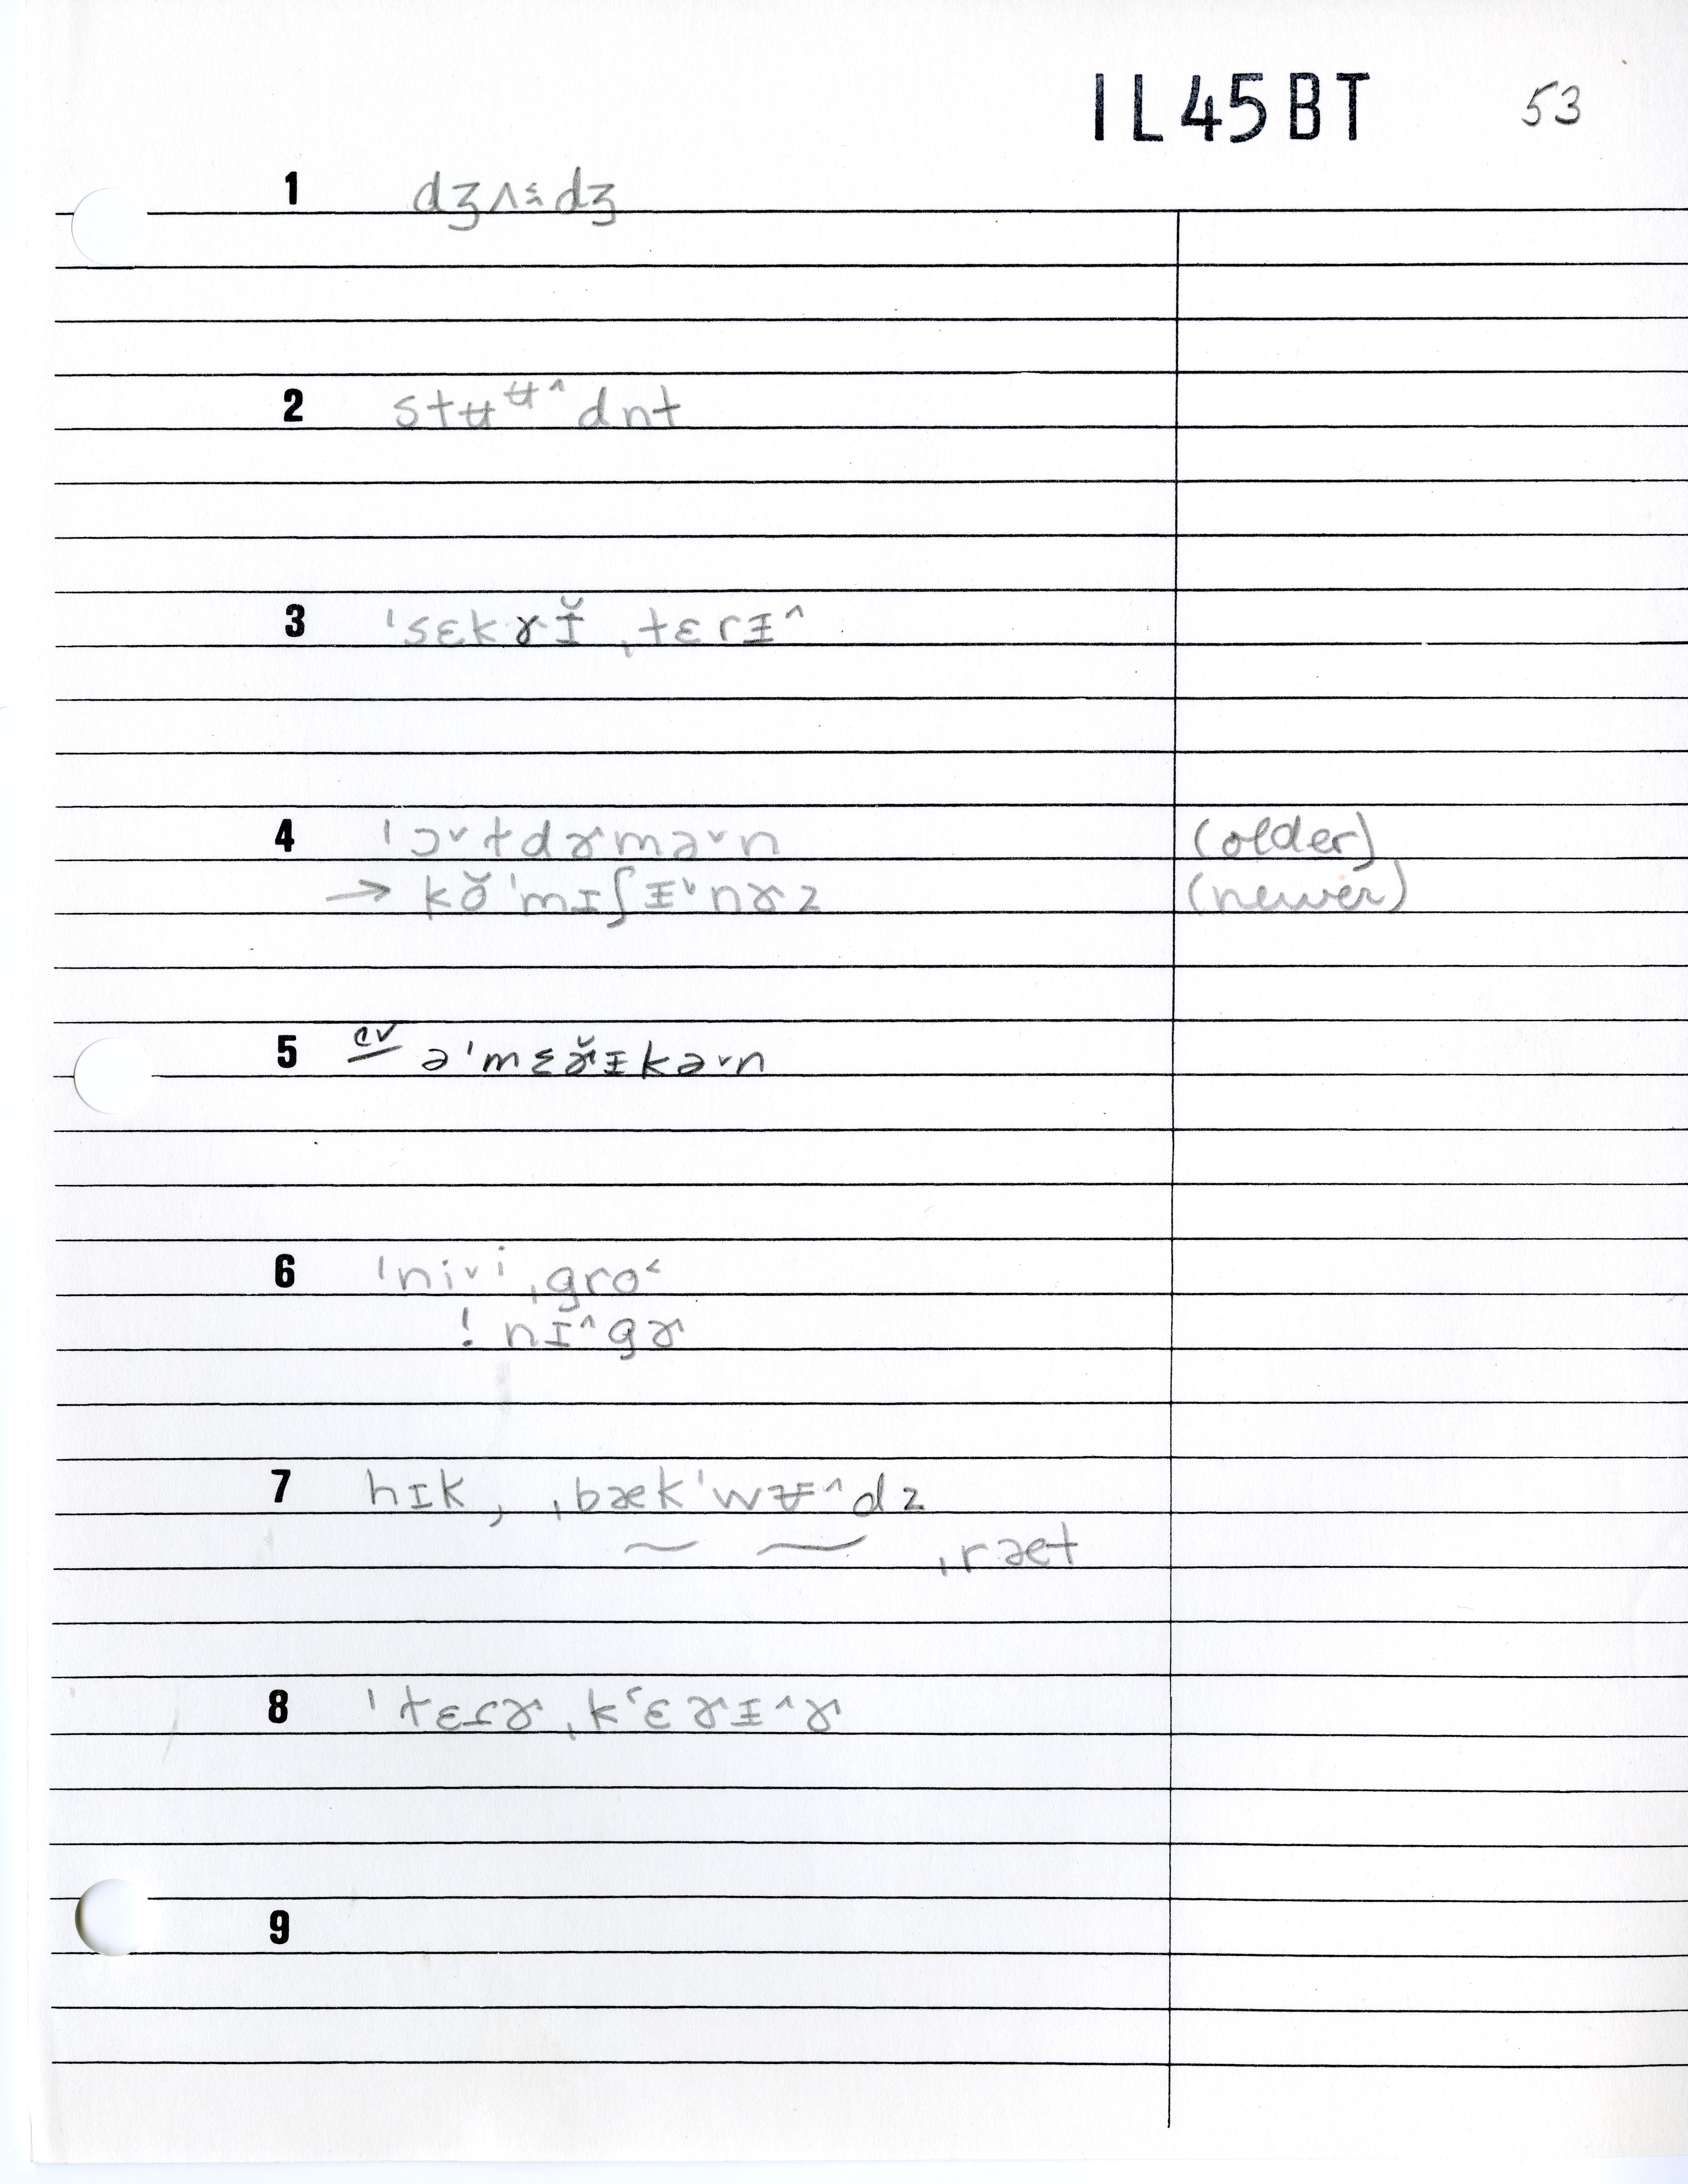 IL45BT 53
1 dʒʌ˂ᵋdʒ
2 stʉᵾ^dnt
3 ˈsɛkɤɪ̵̆ ˌtɛrɪ̵^
4 ˈɔ˅tdɚmə˅n (older)
→ kə̆ˈmɪʃɪ̵˅nɚz (newer)
5 cv əˈmɛɚ̆ɪ̵kə˅n
6 ˈni˅ⁱˌgro˂
! nɪ^gɚ
7 hɪk, ˌbækˈwʊ̵^dz
~ ~ ˌræet
8 ˈtɛɾɚˌk˂ɛɚɪ̵^ɚ
9